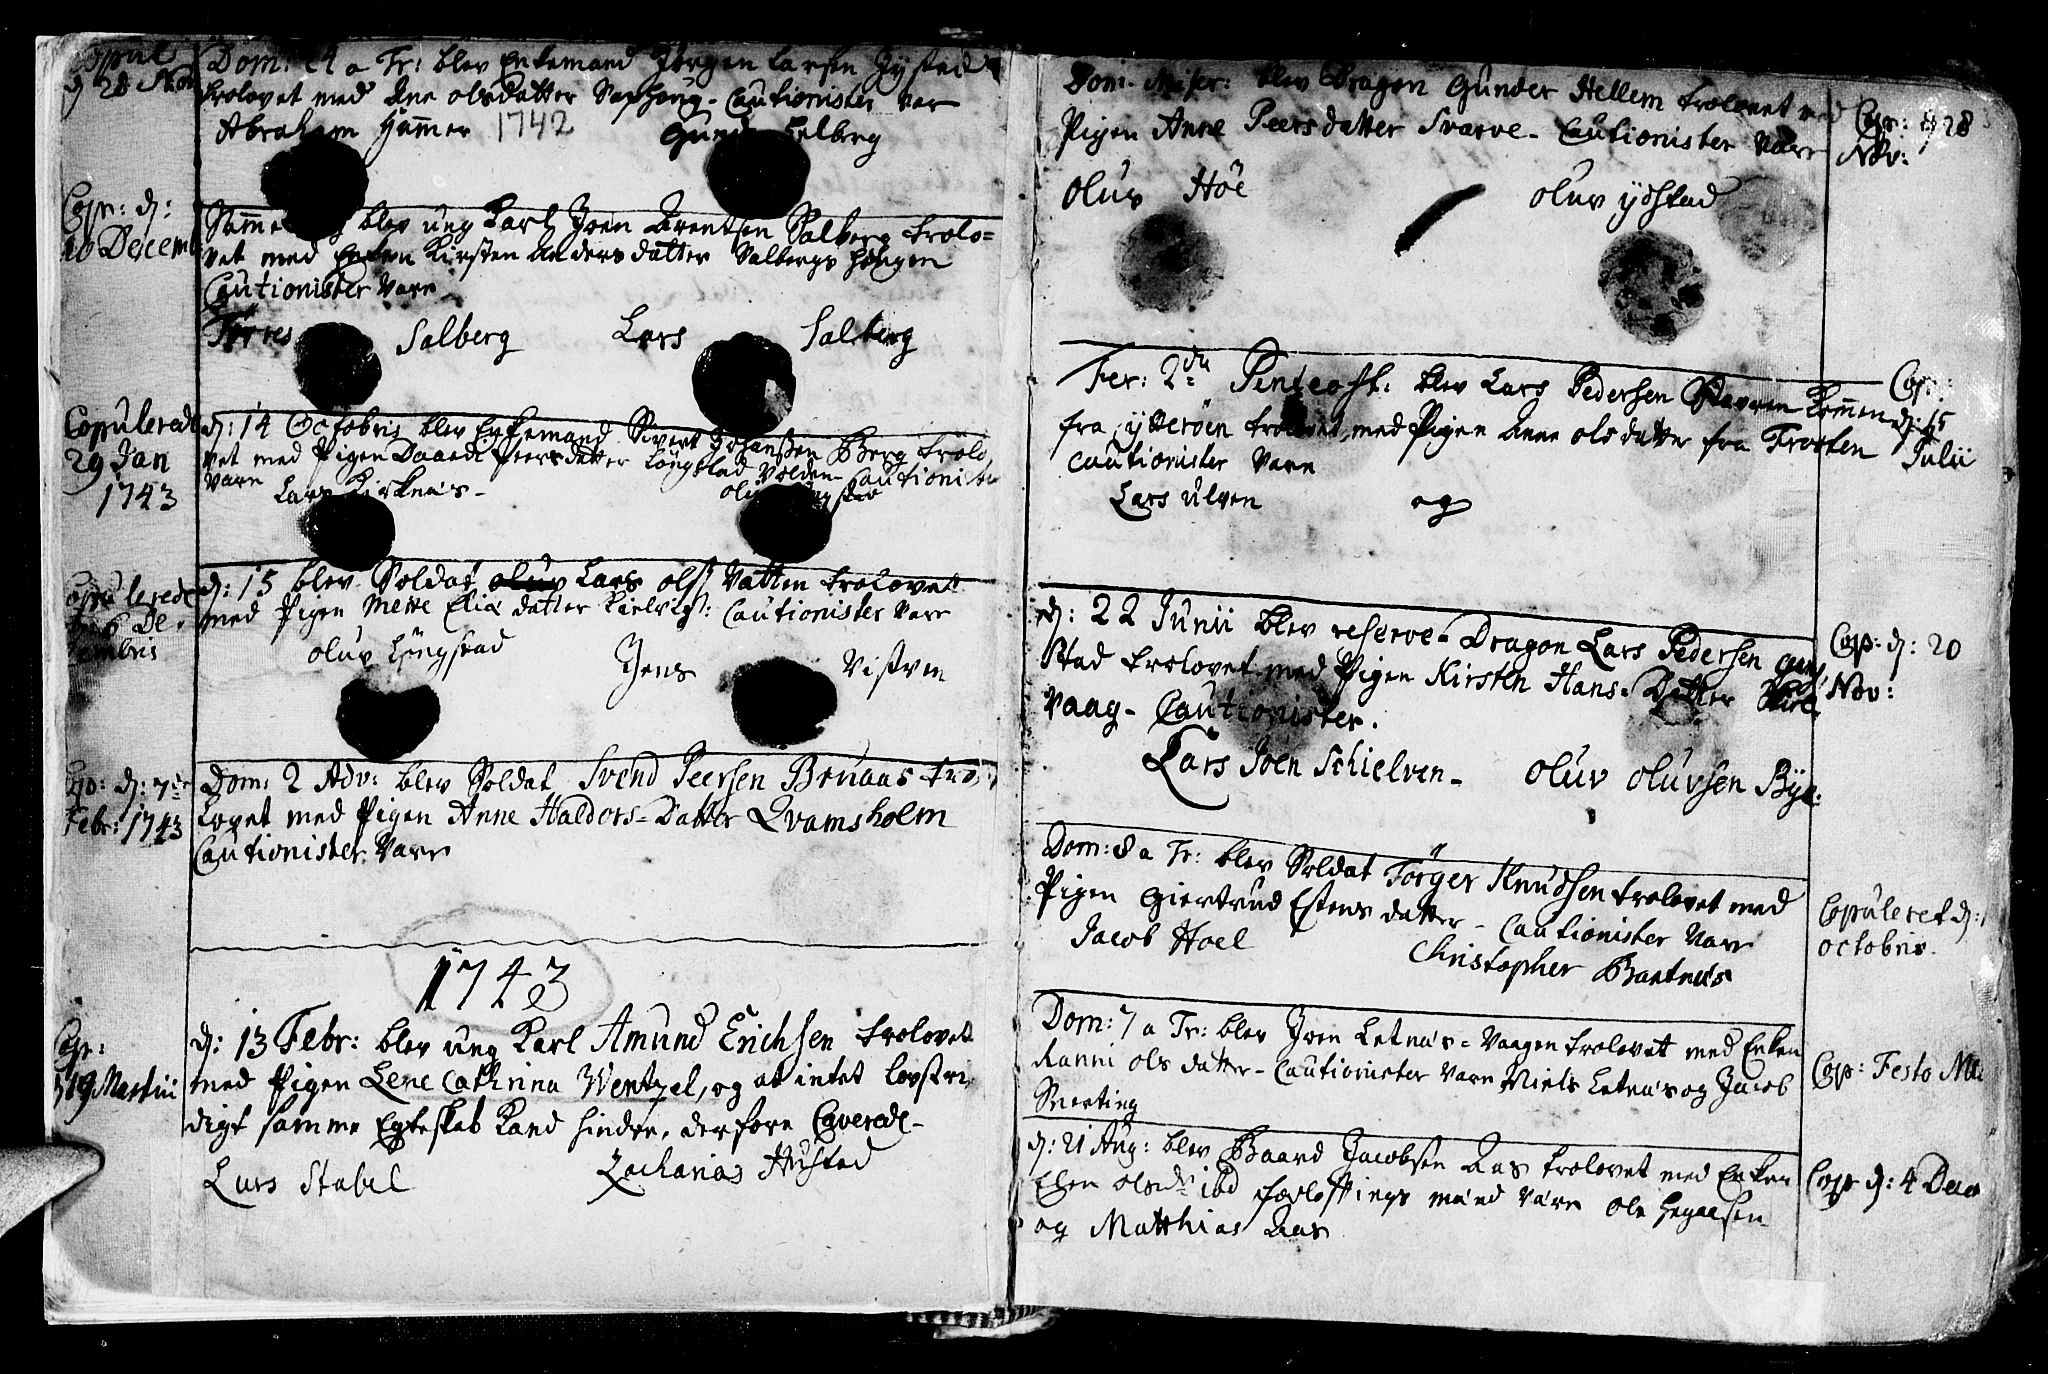 Copul
d 28 Nov
Dom: a Tr: blev Enkemand Jörgen Larsen Jÿstad
trolovet med Ane olsdatter Saxhoug - Cautionister var
Abraham Hammer 1742 Selberg
Cop: d:
10 Decemb
blev ung Karl Joen Arentsen Salberg trolo=
vet med Enken Kirsten Andersdatter Salbergs hougen
Cautionister Vare
Torres Salberg Lars Salberg
Copulerede
29 Jan
1743
d: 14 Octobris blev Enkemand Sivert Johanssen Berg trolo
vet med Pigen Peersdatter Lÿngstad Volden - Cautionister
Vare Lars Kirknæs -
Copulerede
De
cembris
d: 15 blev Soldat Lars ols: Vatten trolovet
med Pigen Mette Eliæ datter : Cautionister Vare
oluv Lÿngstad Jens Vistven
Cop: d: 7de
Febr: 1743
Dom: 2 Adv: blev Soldat Svend Peersen Bruaas tro,,
lovet med Pigen Anne Haldors=Datter Qvamsholm
Cautionister Vare
1743
Cop:
19 Martii
d: 13 Febr: blev ung Karl Amund Erichsen trolovet
med Pigen Lene Cathrina Wentzel, og at intet lovstri,
digt samme Egteskab kand hindre, derfore Caverede -
Lars Stabel Zacharias Hustad
Dom: Miser: blev Dragon Gunder Hellem trolovet med
Pigen Anne Peersdatter Svarve - Cautionister Vare
oluv Höe oluv ÿdstad
Cop: d 28
Nov:
Fer: 2da Pentecost: blev Lars Pedersen Stavren kommen
fra ÿtteröen trolovet med Pigen Anne olsdatter fra Frosten
Cautionister Vare
Lars Ulven og
Cop:
Julii
d: 22 Junii blev reserve-Dragon Lars Pedersen
stad trolovet med Pigen Kirsten Hans-Datter
Vaag - Cautionister.
Lars Joen Schielven - oluv oluvsen Bÿe:
Cop: d: 20
Nov:
Dom: 8 a Tr: blev Soldat Törger Knudsen trolovet med
Pigen Giertrud Estensdatter - Cautionister Vare
Jacob Hoel Christopher Bartnæs
Copuleret d:
octobris.
Dom: 7 a Tr: blev Joen Letnæs=Vaagen trolovet med Enken
Ranni ols datter - Cautionister Vare Niels Letnæs og Jacob
Smerting
Cop: Festo
d: 21 Aug: blev Baard Jacobsen Aas trolovet med Enken
Ellen olsdr ibd mænd vare ole
og Matthias Aas
Cop d: 4 Dec